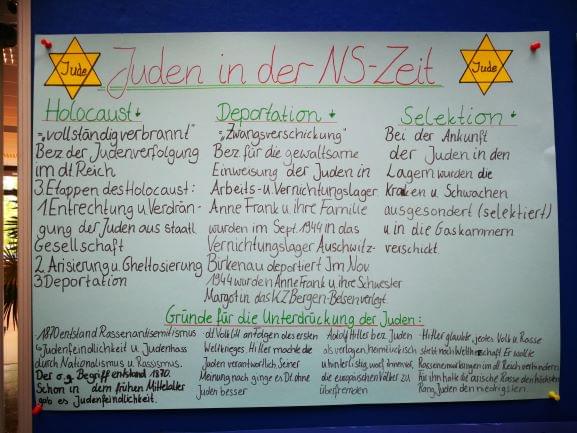 Jude
Juden in der NS-Zeit
Jude
Holocaust
"vollständig verbrannt"
Bez. der Judenverfolgung
im dt Reich
3 Etappen des Holocaust:
1 Entrechtung u. Verdrän-
gung der Juden aus staatl.
Gesellschaft
2 Arisierung u. Ghettosierung
3 Deportation
Deportation
"Zwangsverschickung"
Bez. für die gewaltsame
Einweisung der Juden in
Arbeits- u. Vernichtungslager
Anne Frank u. ihre Familie
wurden im Sept. 1944 in das
Vernichtungslager Auschwitz-
Birkenau deportiert Im Nov.
1944 wurden Anne Frank u. ihre Schwester
Margot in das KZ Bergen-Belsen verlegt.
Selektion
Bei der Ankunft
der Juden in den
Lagern wurden die
Kranken u. Schwachen
ausgesondert (selektiert)
u. in die Gaskammern
verschickt.
Gründe für die Unterdrückung der Juden:
1870 entstand Rassenantisemitismus
Judenfeindlichkeit u. Judenhass
durch Nationalismus u. Rassismus.
Der o.g. Begriff entstand 1870.
Schon in dem frühen Mittelalter
gab es Judenfeindlichkeit.
dt Volk litt an Folgen des ersten
Weltkrieges. Hitler machte die
Juden verantwortlich. Seiner
Meinung nach ginge es Dt. ohne
Juden besser
Adolf Hitler bez. Juden
als verlogen, heimtückisch
u. hinterlistig, warf ihnen vor,
die europäischen Völker zu
überfremden
Hitler glaubte, jedes Volk u. Rasse
strebt nach Weltherrschaft. Er wollte
Rassenmischungen im dt. Reich verhindern
Für ihn hatte die arische Rasse den höchsten
Rang, Juden den niedrigsten.